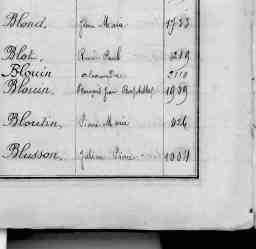 Blond, Jean Marie 1733
Blot, René Paul 1219
Blouin Alexandre 2110
Blouin, François Jean Baptiste 1939
Bloutin, Pierre Marie 426
Blusson, Julien Pierre 1004